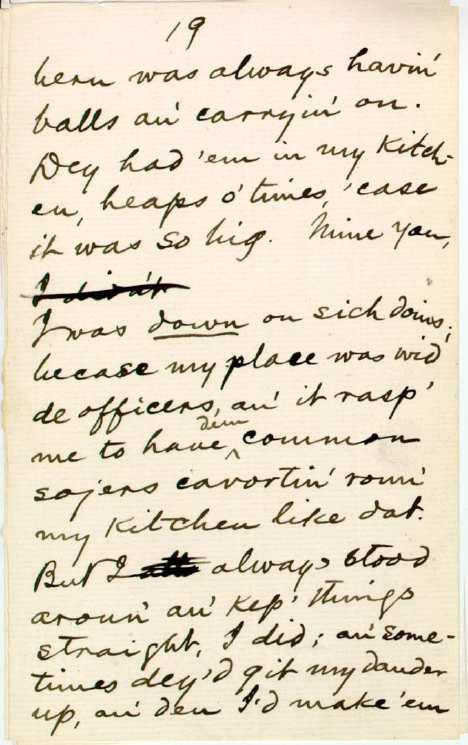 19
hern was always havin'
balls an' carryin' on.
Dey had 'em in my kitch-
en, heaps o' times, 'case
it was so big. Mine you,
I didn't
I was down on sich doins;
becase my place was wid
de officers, an' it rasp'
me to have dem common
sojers cavortin' roun'
my kitchen like dat.
But I always stood
aroun' an' kep' things
straight, I did; an' some-
times dey'd git my dander
up, an' den I'd make 'em